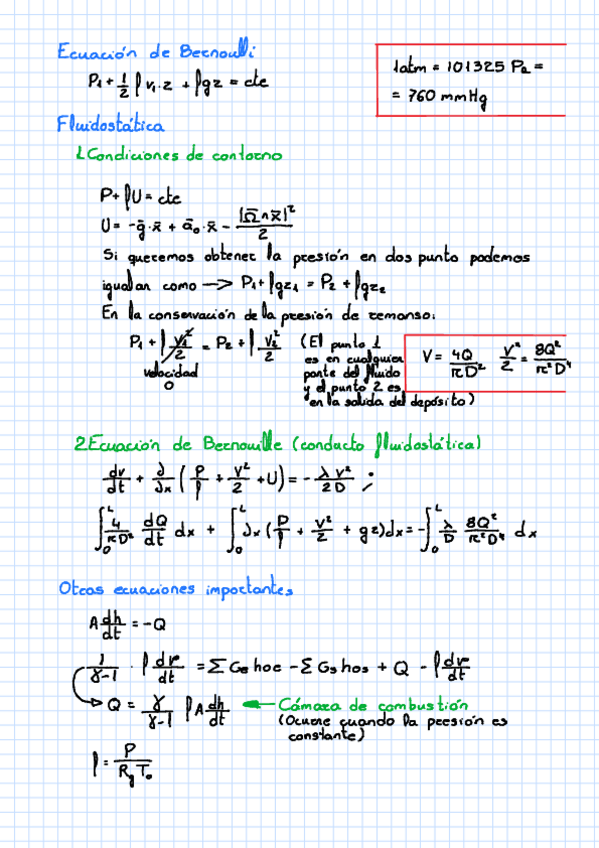 Ecuación de Bernoulli
P₁ + 1/2 ρ v₁·z + ρgz = cte
1atm = 101325 Pa =
= 760 mmHg
Fluidostática
1. Condiciones de contorno
P + ρU = cte
U = -ḡ·x̄ + ā₀·x̄ - |Ω̄∧x̄|²/2
Si queremos obtener la presión en dos punto podemos
igualar como → P₁ + ρgz₁ = P₂ + ρgz₂
En la conservación de la presión de remanso:
P₁ + ρ V₁²/2 = P₂ + ρ V₂²/2
velocidad
0
(El punto 1
es en cualquier
parte del fluido
y el punto 2 es
en la salida del depósito)
V = 4Q/πD² V²/2 = 8Q²/π²D⁴
2. Ecuación de Bernouille (conducto fluidostática)
dv/dt + ∂/∂x (P/ρ + V²/2 + U) = - λ V²/2D ;
∫₀ᴸ 4/πD² dQ/dt dx + ∫₀ᴸ ∂x (P/ρ + V²/2 + gz)dx = -∫₀ᴸ λ/D 8Q²/π²D⁴ dx
Otras ecuaciones importantes
A dh/dt = -Q
1/γ-1 · ρ dv/dt = ΣGe hoe - ΣGs hos + Q - ρ dv/dt
Q = γ/γ-1 ρA dh/dt ← Cámara de combustión
(Ocurre cuando la presión es
constante)
ρ = P/Rg T₀